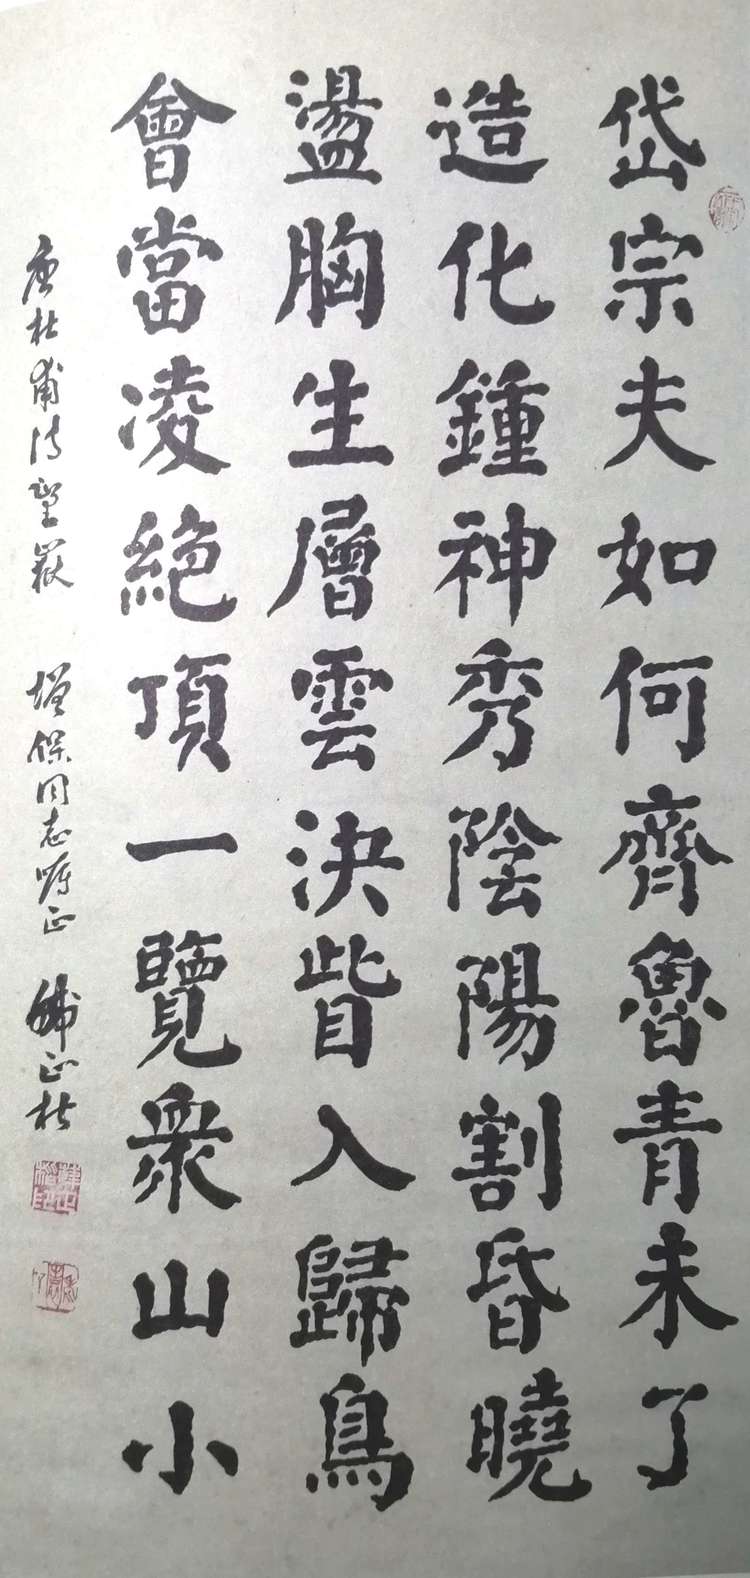 岱宗夫如何齊魯青未了
造化鍾神秀陰陽割昏曉
盪胸生層雲決眥入歸鳥
會當凌絕頂一覽衆山小
唐杜甫詩望嶽 增保同志嘱正 正椿